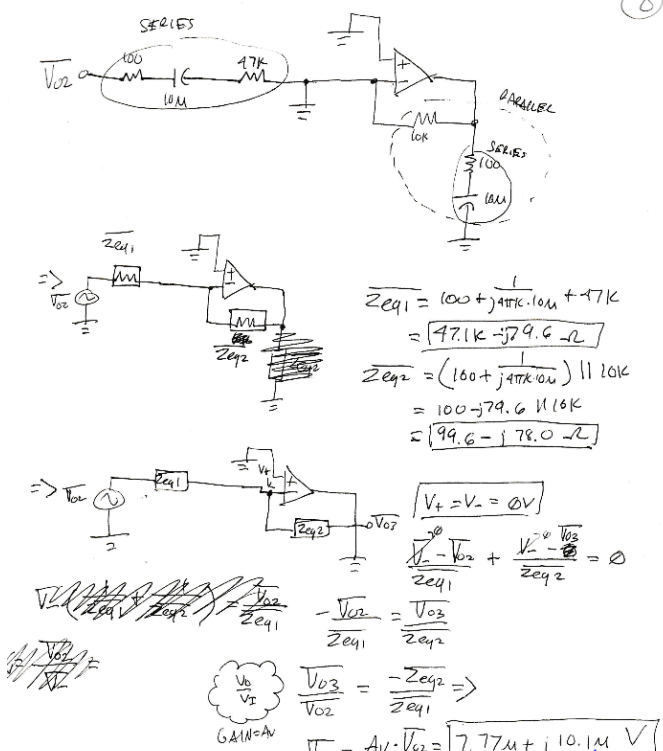 SERIES
V02
100
10M
47K
+
-
10K
PARALLEL
SERIES
100
10M
Zeq1
=> V02
+
-
Zeq2
Zeq1 = 100 + 1/j4πK·10M + 47K
= 47.1K - j79.6 Ω
Zeq2 = (100 + 1/j4πK·10M) || 10K
= 100 - j79.6 || 10K
= 99.6 - j 78.0 Ω
=> V02
Zeq1
V+
+
-
Zeq2
V03
V+ = V- = 0V
V- - V02 / Zeq1 + V- - V03 / Zeq2 = 0
- V02 / Zeq1 = V03 / Zeq2
V0 / VI
GAIN=AV
V03 / V02 = -Zeq2 / Zeq1 =>
AV·V02 = 7.77M + j 10.1M V